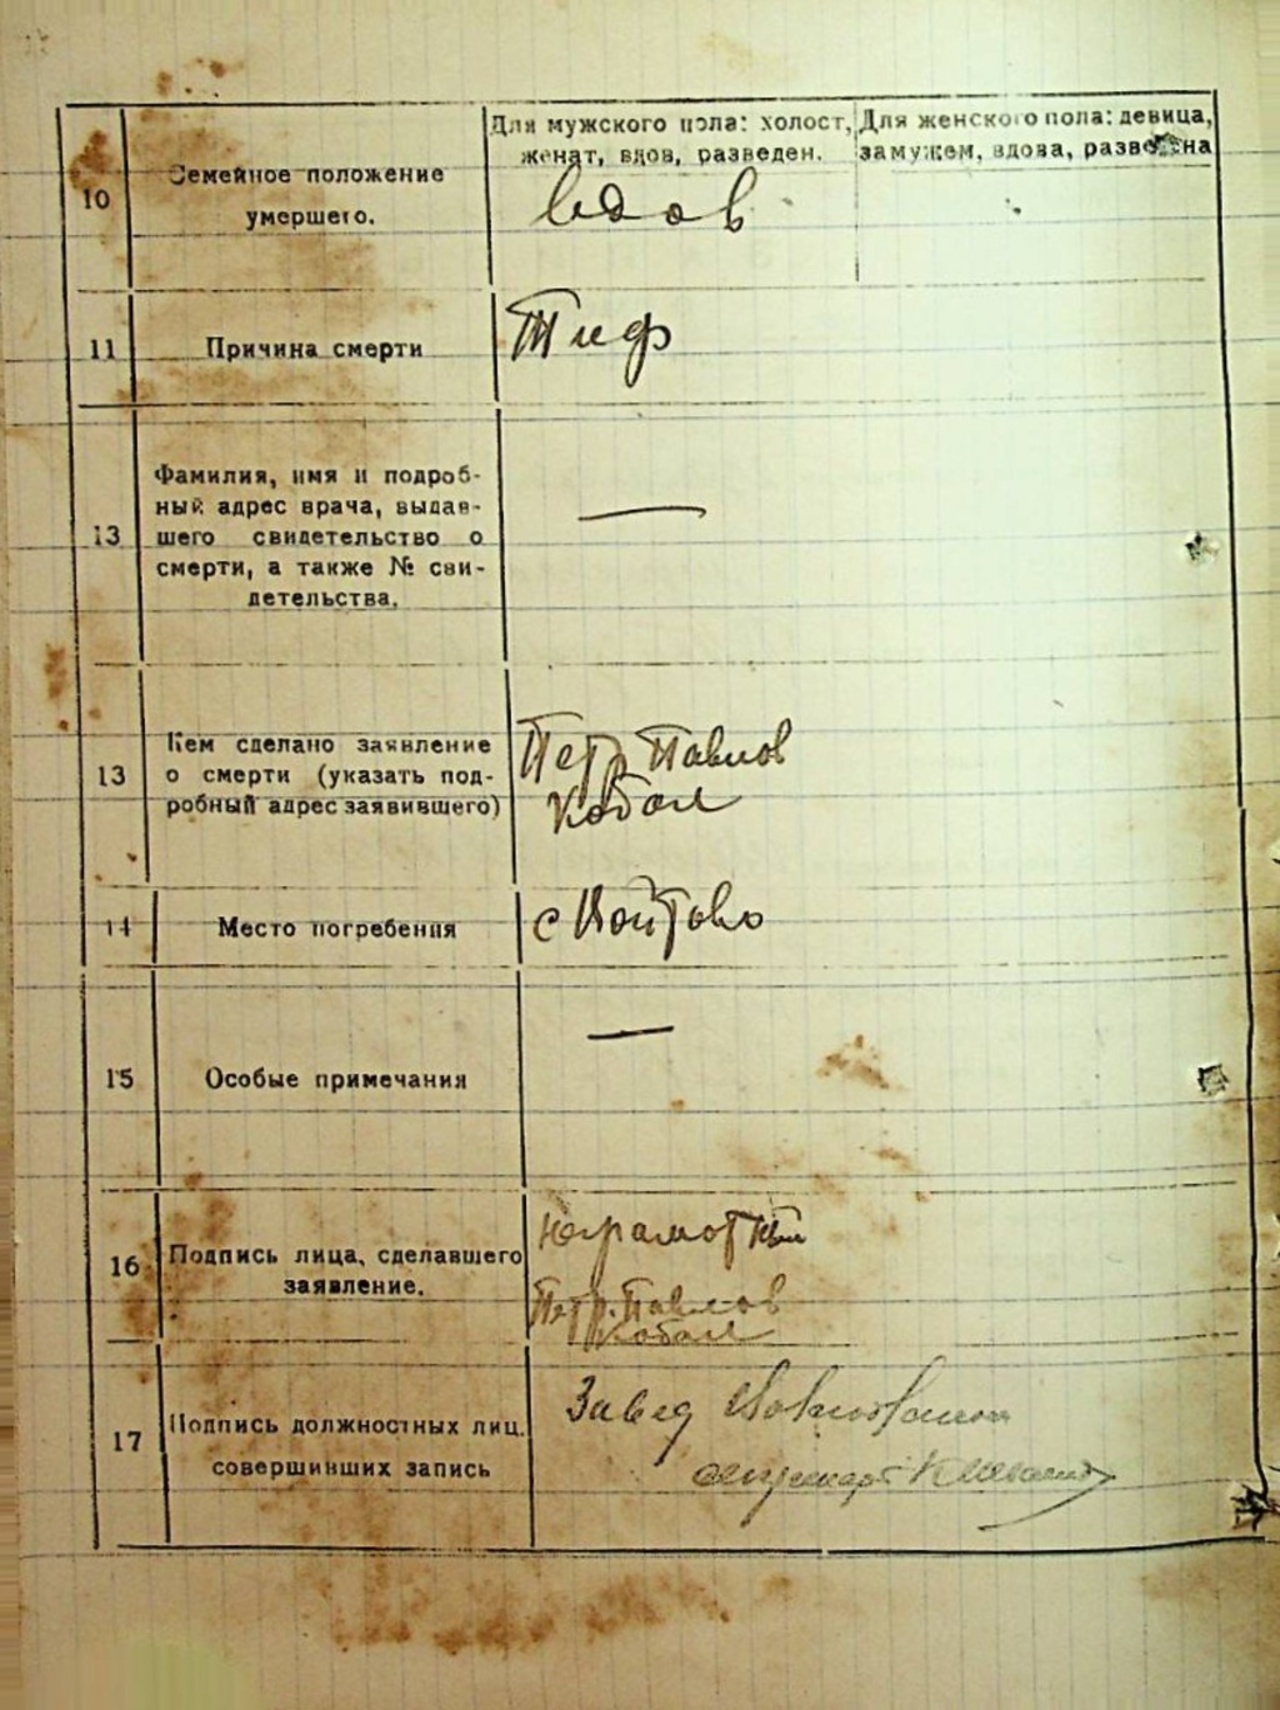 10
Семейное положение
умершего.
Для мужского пола: холост,
женат, вдов, разведен.
Для женского пола: девица,
замужем, вдова, разведена
вдов
11
Причина смерти
Тиф
13
Фамилия, имя и подроб-
ный адрес врача, выдав-
шего свидетельство о
смерти, а также № сви-
детельства.
—
13
Кем сделано заявление
о смерти (указать под-
робный адрес заявившего)
Петр Павлов
Кобал
14
Место погребения
с Войтово
15
Особые примечания
—
16
Подпись лица, сделавшего
заявление.
неграмотный
Петр. Павлов
Кобал
17
Подпись должностных лиц.
совершивших запись
Завед